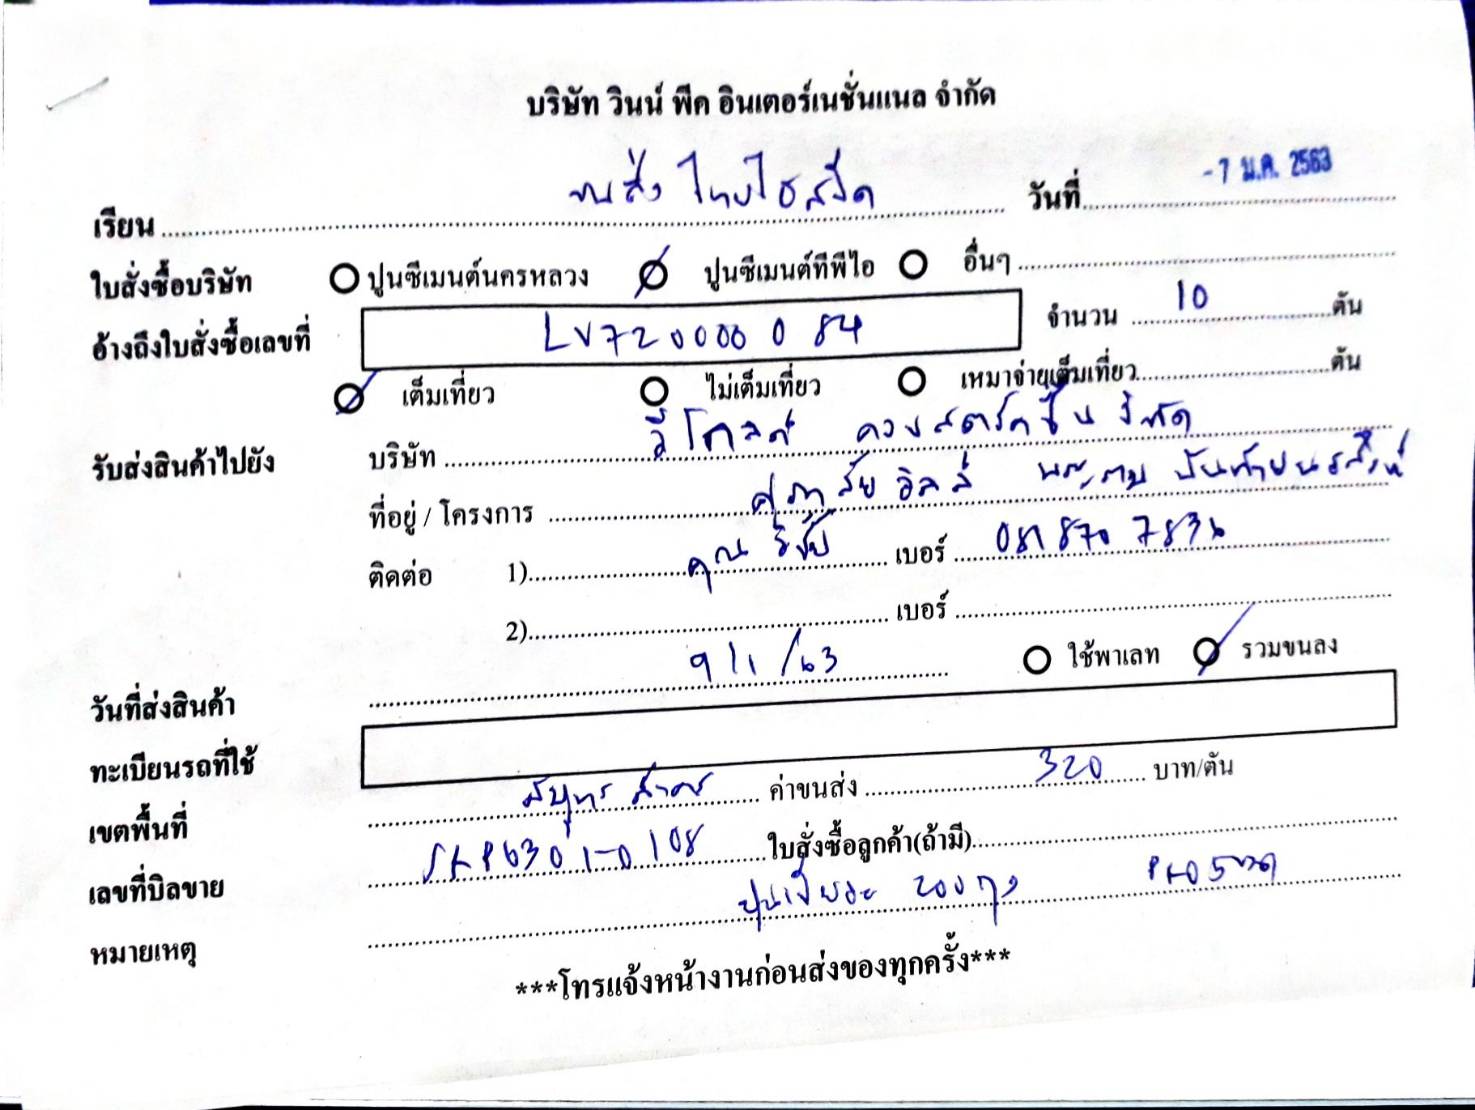 บริษัท วินน์ พีค อินเตอร์เนชั่นแนล จำกัด
เรียน ขนส่ง ไทยไชสวัด วันที่ -7 ม.ค. 2563
ใบสั่งซื้อบริษัท ปูนซีเมนต์นครหลวง ปูนซีเมนต์ทีพีไอ อื่นๆ
อ้างถึงใบสั่งซื้อเลขที่ LV720000084 จำนวน 10 ตัน
เต็มเที่ยว ไม่เต็มเที่ยว เหมาจ่ายเต็มเที่ยว ตัน
รับส่งสินค้าไปยัง บริษัท วีโกลด์ คอนสตรัคชั่น จำกัด
ที่อยู่ / โครงการ ศุภาลัย วิลล์
ติดต่อ 1) คุณ วิชัย เบอร์ 081 870 7836
2) เบอร์
วันที่ส่งสินค้า 9/1/63 ใช้พาเลท รวมขนลง
ทะเบียนรถที่ใช้
เขตพื้นที่ สมุทรสาคร ค่าขนส่ง 320 บาท/ตัน
เลขที่บิลขาย 6301-0108 ใบสั่งซื้อลูกค้า(ถ้ามี)
หมายเหตุ 200 ถุง
***โทรแจ้งหน้างานก่อนส่งของทุกครั้ง***